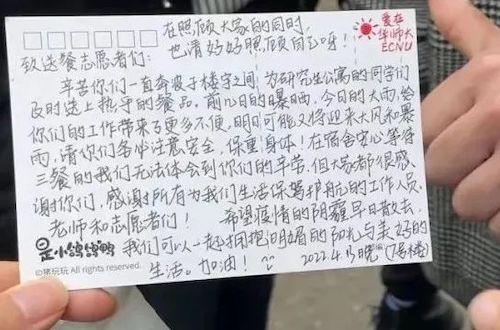 在照顾大家的同时,
也请好好照顾自己呀!
爱在
华师大
ECNU
致送餐志愿者们:
辛苦你们一直奔波于楼宇之间为研究生公寓的同学们
及时送上热乎的餐品,前几日的暴晒,今日的大雨,给
你们的工作带来了更多不便,明日可能又将迎来大风和暴
雨,请你们务必注意安全,保重身体!在宿舍安心等待
三餐的我们无法体会到你们的辛苦,但大家都很感
谢你们,感谢所有为我们生活保驾护航的工作人员、
老师和志愿者们! 希望疫情的阴霾早日散去,
是小鸽鸽鸭
我们可以一起拥抱明媚的阳光与美好的
©猪玩玩 All rights reserved.
生活。加油! 2022.4.13晚